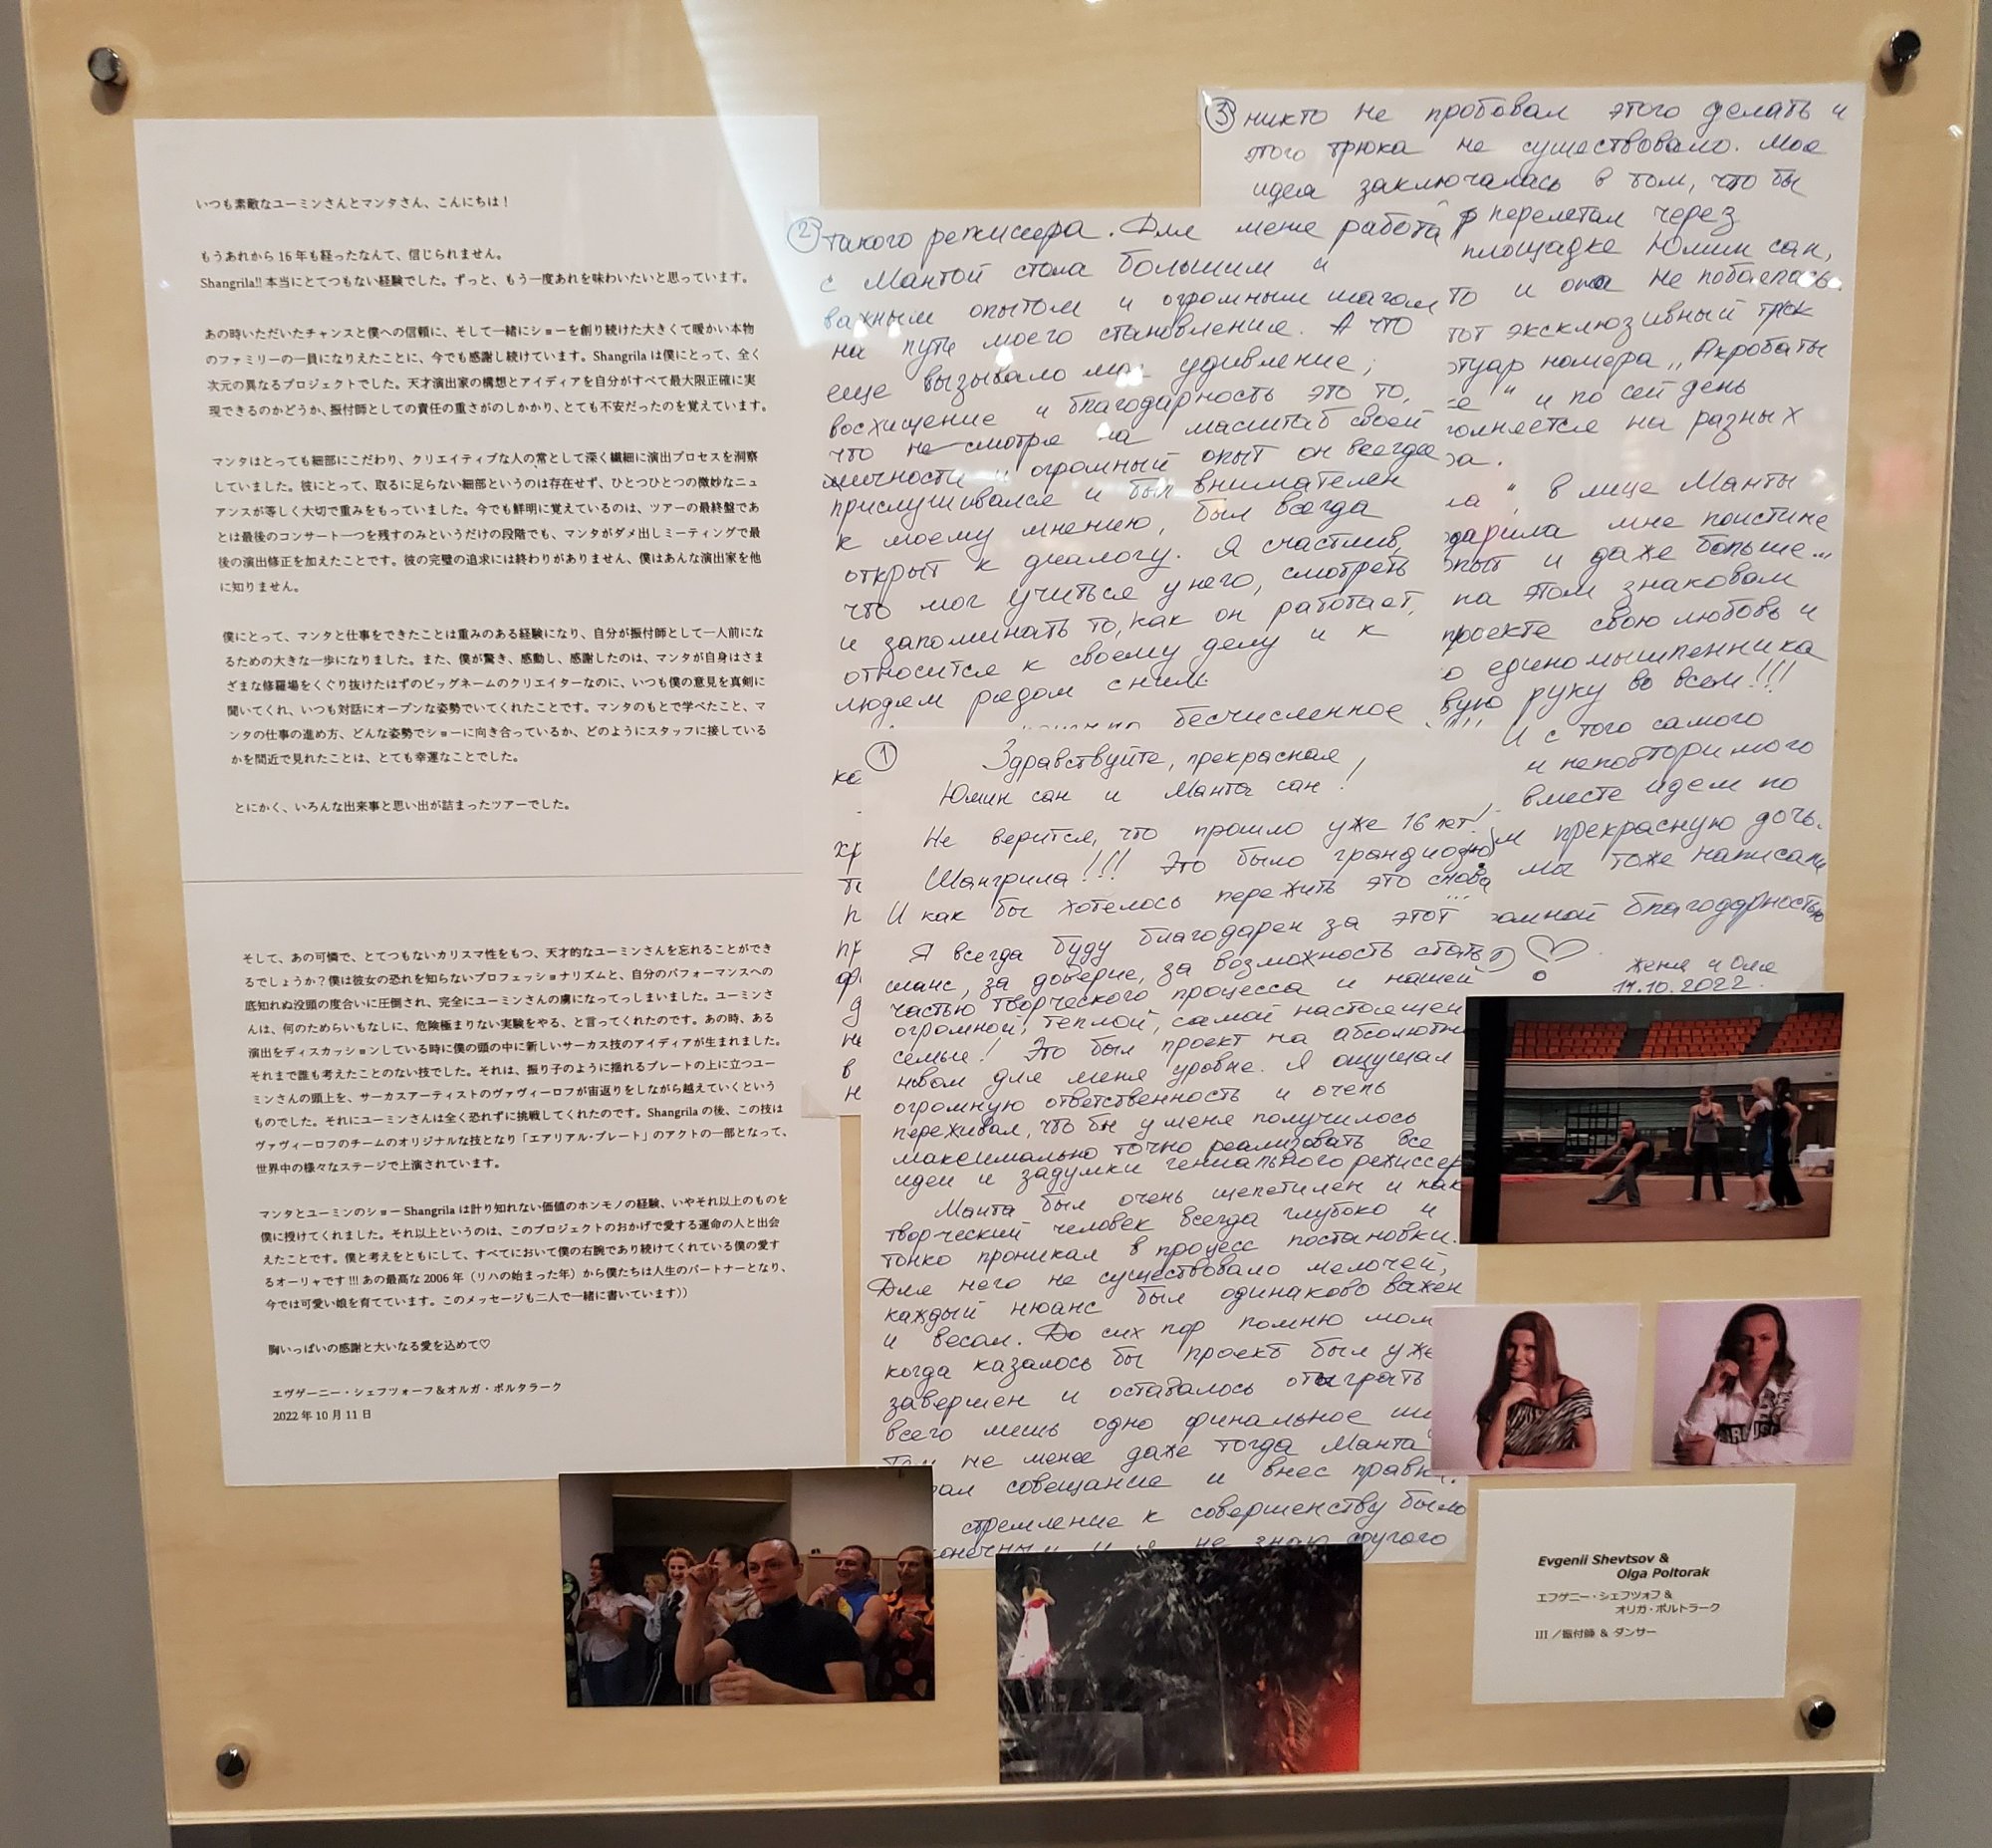 いつも素敵なユーミンさんとマンタさん、こんにちは！
もうあれから16年も経ったなんて、信じられません。
Shangrila!! 本当にとてつもない経験でした。ずっと、もう一度あれを味わいたいと思っています。
あの時いただいたチャンスと僕への信頼に、そして一緒にショーを創り続けた大きくて暖かい本物
のファミリーの一員になりえたことに、今でも感謝し続けています。Shangrila は僕にとって、全く
次元の異なるプロジェクトでした。天才演出家の構想とアイディアを自分がすべて最大限正確に実
現できるのかどうか、振付師としての責任の重さがのしかかり、とても不安だったのを覚えています。
マンタはとっても細部にこだわり、クリエイティブな人の常として深く繊細に演出プロセスを洞察
していました。彼にとって、取るに足らない細部というのは存在せず、ひとつひとつの微妙なニュ
アンスが等しく大切で重みをもっていました。今でも鮮明に覚えているのは、ツアーの最終盤であ
とは最後のコンサート一つを残すのみというだけの段階でも、マンタがダメ出しミーティングで最
後の演出修正を加えたことです。彼の完璧の追求には終わりがありません、僕はあんな演出家を他
に知りません。
僕にとって、マンタと仕事をできたことは重みのある経験になり、自分が振付師として一人前にな
るための大きな一歩になりました。また、僕が驚き、感動し、感謝したのは、マンタが自身はさま
ざまな修羅場をくぐり抜けたはずのビッグネームのクリエイターなのに、いつも僕の意見を真剣に
聞いてくれ、いつも対話にオープンな姿勢でいてくれたことです。マンタのもとで学べたこと、マ
ンタの仕事の進め方、どんな姿勢でショーに向き合っているか、どのようにスタッフに接している
かを間近で見れたことは、とても幸運なことでした。
とにかく、いろんな出来事と思い出が詰まったツアーでした。
そして、あの可憐で、とてつもないカリスマ性をもつ、天才的なユーミンさんを忘れることができ
るでしょうか？僕は彼女の恐れを知らないプロフェッショナリズムと、自分のパフォーマンスへの
底知れぬ没頭の度合いに圧倒され、完全にユーミンさんの虜になってっしまいました。ユーミンさ
んは、何のためらいもなしに、危険極まりない実験をやる、と言ってくれたのです。あの時、ある
演出をディスカッションしている時に僕の頭の中に新しいサーカス技のアイディアが生まれました。
それまで誰も考えたことのない技でした。それは、振り子のように揺れるプレートの上に立つユー
ミンさんの頭上を、サーカスアーティストのヴァヴィーロフが宙返りをしながら越えていくという
ものでした。それにユーミンさんは全く恐れずに挑戦してくれたのです。Shangrila の後、この技は
ヴァヴィーロフのチームのオリジナルな技となり「エアリアル・プレート」のアクトの一部となって、
世界中の様々なステージで上演されています。
マンタとユーミンのショー Shangrila は計り知れない価値のホンモノの経験、いやそれ以上のものを
僕に授けてくれました。それ以上というのは、このプロジェクトのおかげで愛する運命の人と出会
えたことです。僕と考えをともにして、すべてにおいて僕の右腕であり続けてくれている僕の愛す
るオーリャです!!! あの最高な 2006 年（リハの始まった年）から僕たちは人生のパートナーとなり、
今では可愛い娘を育てています。このメッセージも二人で一緒に書いています））
胸いっぱいの感謝と大いなる愛を込めて♡
エヴゲーニー・シェフツォーフ＆オルガ・ポルタラーク
2022 年 10 月 11 日
① Здравствуйте, прекрасная
Юмин сан и Манта сан!
Не верится, что прошло уже 16 лет!
Шангрила!!! Это было грандиозно!
И как бы хотелось пережить это снова...
Я всегда буду благодарен за этот
шанс, за доверие, за возможность стать
частью творческого процесса и нашей
огромной, теплой, самой настоящей
семьи! Это был проект на абсолютно
новом для меня уровне. Я ощущал
огромную ответственность и очень
переживал, что бы у меня получилось
максимально точно реализовать все
идеи и задумки гениального режиссер
Манта был очень щепетилен и как
творческий человек всегда глубоко и
тонко проникал в процесс постановки.
Для него не существовало мелочей,
каждый нюанс был одинаково важен
и весом. До сих пор помню мом
когда казалось бы проект был уже
завершен и оставалось отыграть
всего лишь одно финальное
Тем не менее даже тогда Манта
рал совещание и внес правки.
стремление к совершенству было
конечным и я не знаю другого
② такого режиссера. Для меня работа
с Мантой стала большим и
важным опытом и огромным шагом
на пути моего становления. А что
еще вызывало мое удивление,
восхищение и благодарность это то,
что не смотря на масштаб своей
личности и огромный опыт он всегда
прислушивался и был внимателен
к моему мнению, был всегда
открыт к диалогу. Я счастлив,
что мог учиться у него, смотреть
и запоминать то, как он работает,
относится к своему делу и к
людям рядом с ним.
бесчисленное
③ никто не пробовал этого делать и
этого трюка не существовало. Моя
идея заключалась в том, что бы
перелетал через
площадке Юмин сан,
то и она не побоялась.
тот эксклюзивный трюк
туар номера „Акробаты
е" и по сей день
олняется на разных
ла" в лице Манты
дарила мне поистине
опыт и даже больше...
на этом знаковом
проекте свою любовь и
о единомышленника
вую руку во всем!!!
И с того самого
и неповторимого
вместе идем по
м прекрасную дочь.
мы тоже написали
омной благодарностью
♡
Женя и Оля
11.10.2022
Evgenii Shevtsov &
Olga Poltorak
エフゲニー・シェフツォフ &
オリガ・ポルトラーク
III ／振付師 & ダンサー